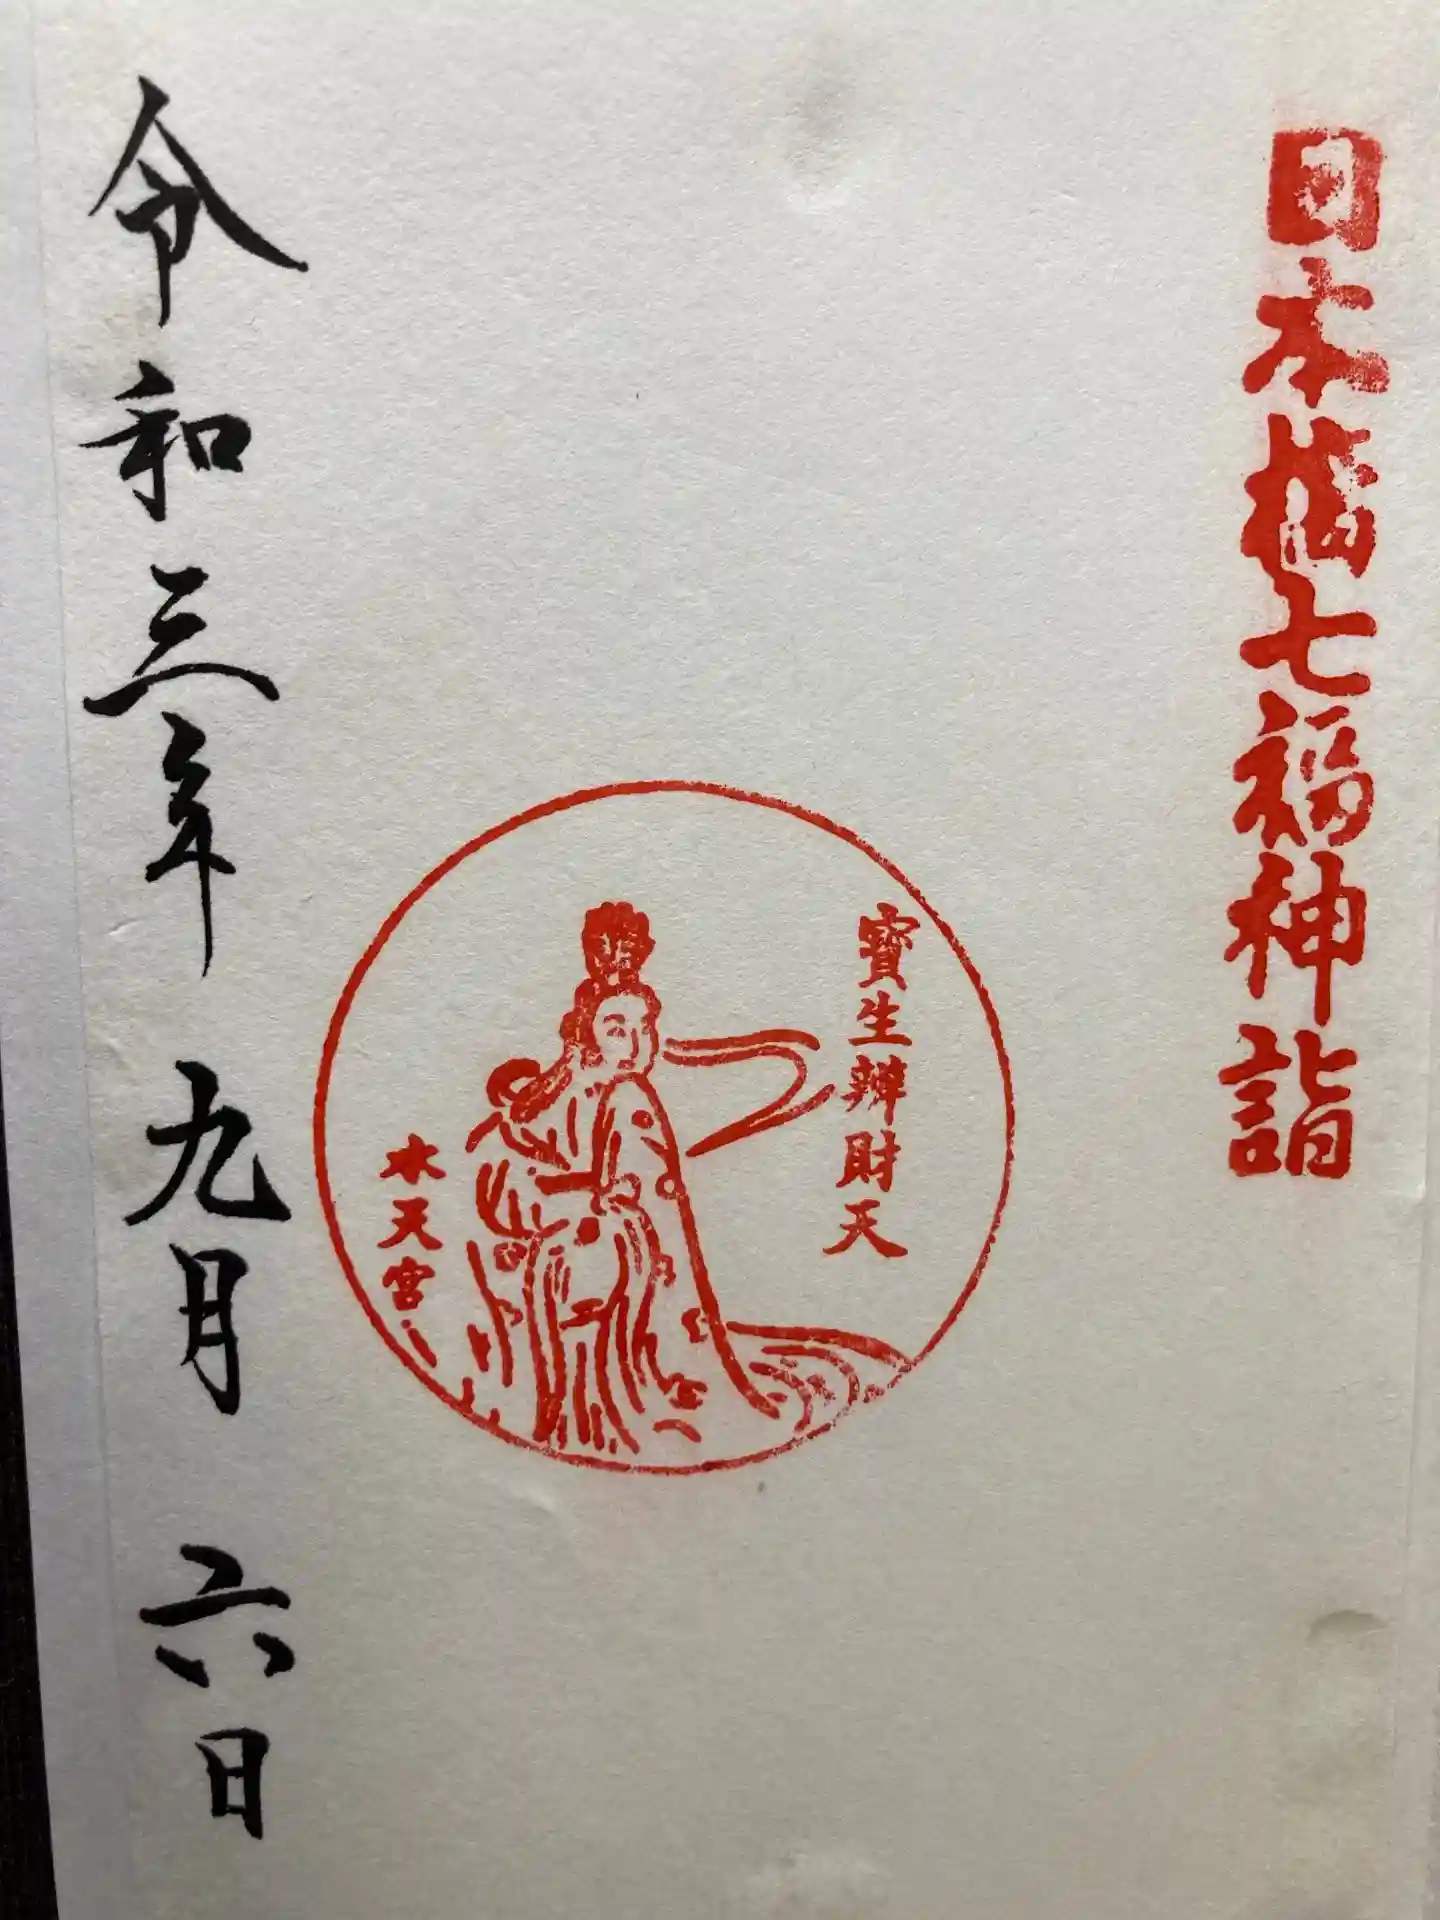 日本橋七福神詣
寳生辨財天
水天宮
令和三年九月六日